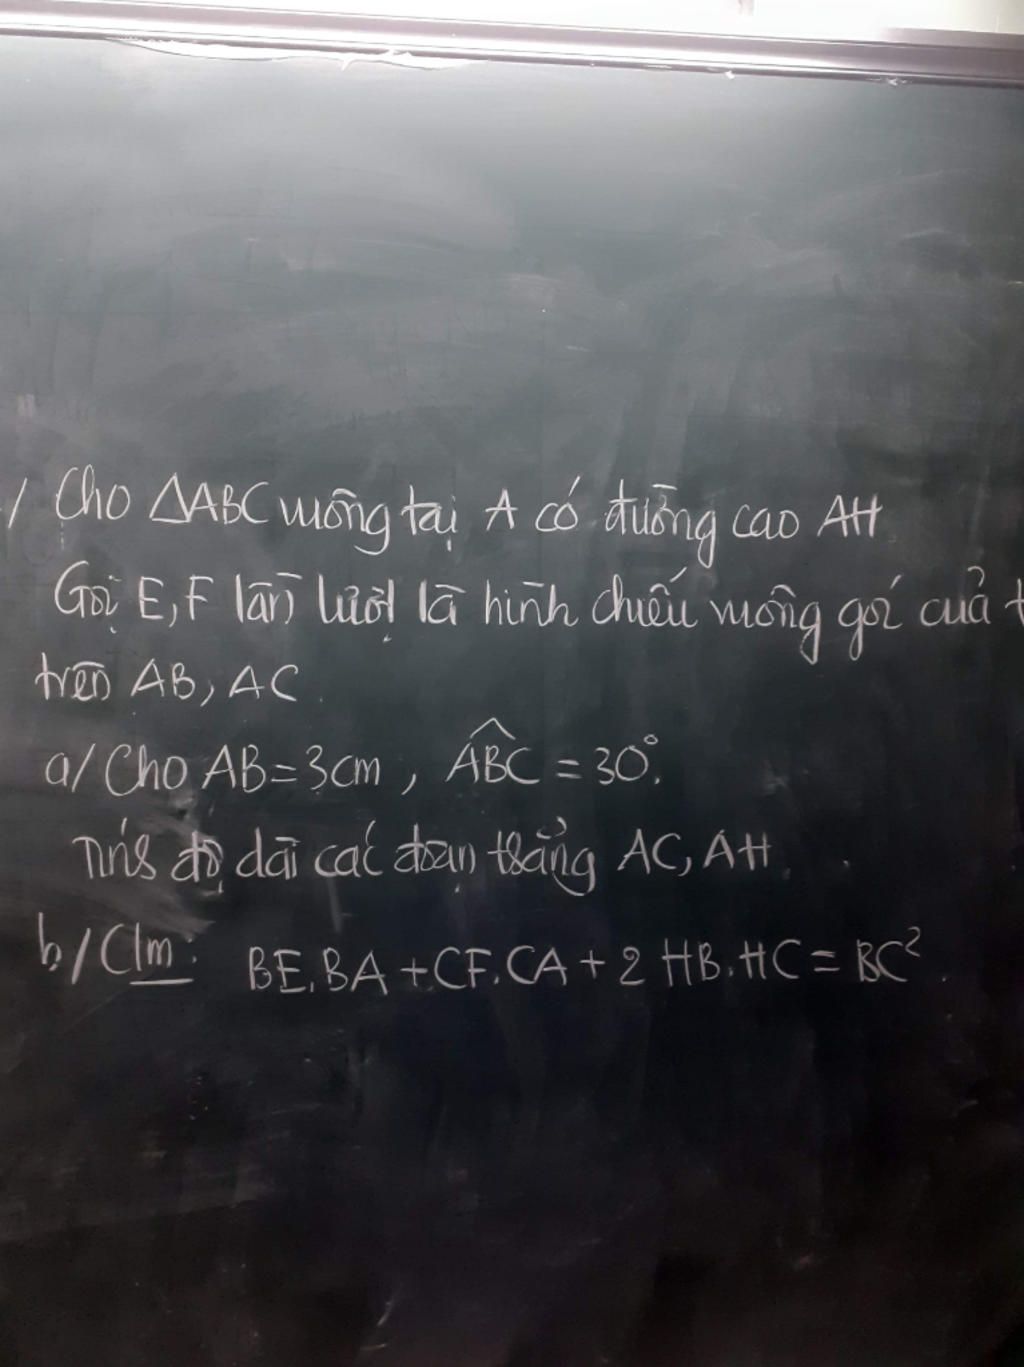 / Cho ΔABC vuông tại A có đường cao AH
Gọi E, F lần lượt là hình chiếu vuông góc của
trên AB, AC.
a/ Cho AB = 3cm, \widehat{ABC} = 30°.
Tính độ dài các đoạn thẳng AC, AH.
b/ C/m: BE.BA + CF.CA + 2 HB.HC = BC².